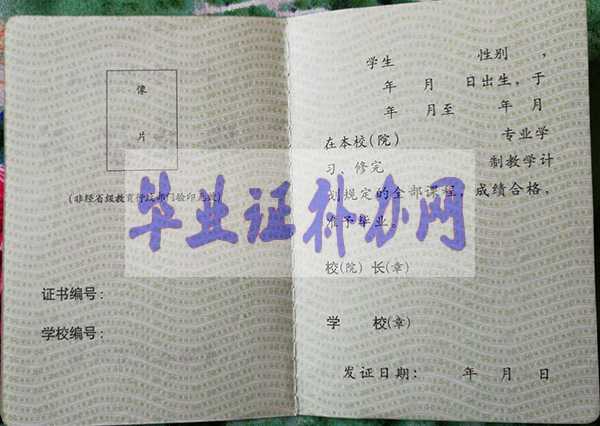 像
片
(非经省级教育行政部门验印无效)
证书编号：
学校编号：
学生 性别 ，
年 月 日出生，于
年 月至 年 月
在本校(院) 专业学
习、修完 制教学计
划规定的全部课程，成绩合格，
准予毕业。
校(院) 长(章)
学 校(章)
发证日期： 年 月 日
毕业证补办网